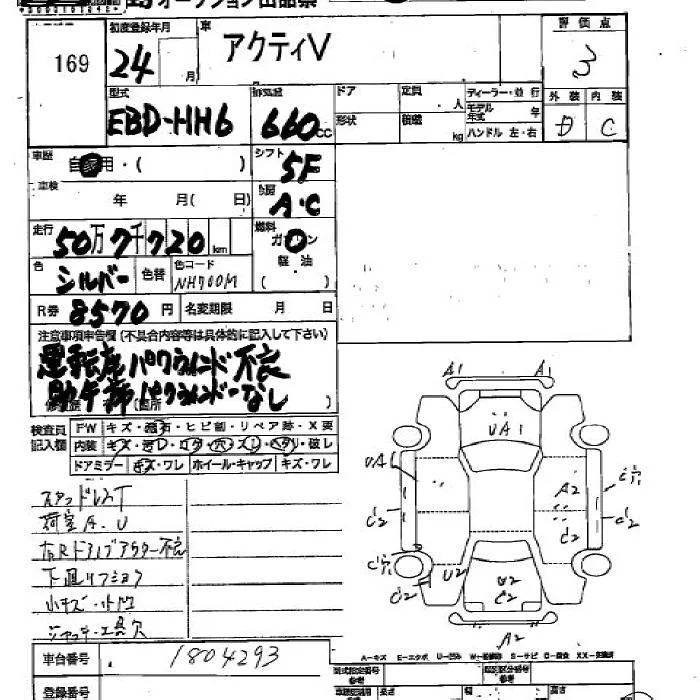 オークション出品票
169
初度登録年月
24 月
車
アクティV
評価点
3
型式
EBD-HH6
排気量
660cc
ドア
形状
定員 人
積載 kg
ディーラー・並行
モデル年式 年
ハンドル 左・右
外装 内装
D C
車歴
自家用・( )
シフト
5F
車検
年 月( 日)
冷房
A・C
走行
50万7千720km
燃料
ガソリン
軽油
( )
色
シルバー
色替
色コード
NH700M
R券 8570円
名変期限 月 日
注意事項申告欄(不具合内容等は具体的に記入して下さい)
運転席パワウィンド不良
助手席パワウィンドーなし
検査員記入欄
FW キズ・飛石・ヒビ割・リペア跡・X要
内装 キズ・汚レ・コゲ・穴・スレ・ヘタリ・破レ
ドアミラー キズ・ワレ ホイール・キャップ キズ・ワレ
荷室A.U
右Rドライブアウター不良
下廻リ
小キズ・小凹
ジャッキ・工具欠
A1 A1
UA1
UA1
A2
C2
C2
C2
C2
U2
U2
C2
A2
車台番号
1804293
登録番号
A-キズ E-エクボ U-凹ミ W-補修跡 S-サビ C-腐食 XX-交換済
型式指定番号
参考
類別区分番号
参考
長さ
幅
高さ